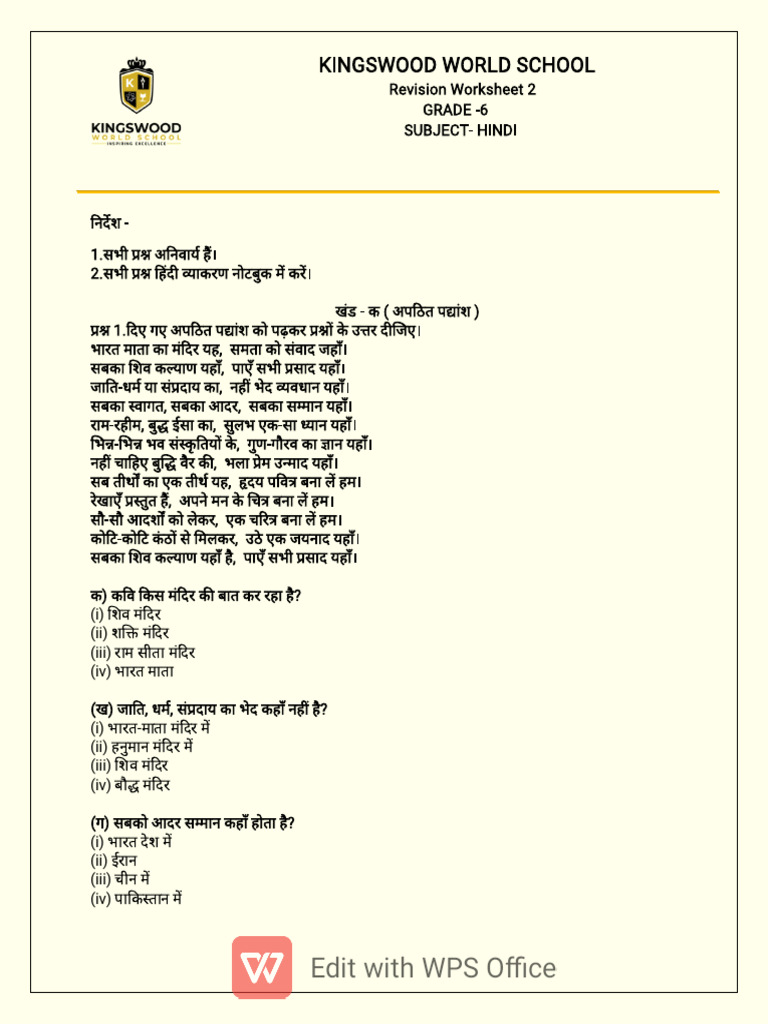 KINGSWOOD WORLD SCHOOL
Revision Worksheet 2
GRADE -6
SUBJECT- HINDI
K
KINGSWOOD
WORLD SCHOOL
INSPIRING EXCELLENCE
निर्देश -
1.सभी प्रश्न अनिवार्य हैं।
2.सभी प्रश्न हिंदी व्याकरण नोटबुक में करें।
खंड - क ( अपठित पद्यांश )
प्रश्न 1.दिए गए अपठित पद्यांश को पढ़कर प्रश्नों के उत्तर दीजिए।
भारत माता का मंदिर यह, समता को संवाद जहाँ।
सबका शिव कल्याण यहाँ, पाएँ सभी प्रसाद यहाँ।
जाति-धर्म या संप्रदाय का, नहीं भेद व्यवधान यहाँ।
सबका स्वागत, सबका आदर, सबका सम्मान यहाँ।
राम-रहीम, बुद्ध ईसा का, सुलभ एक-सा ध्यान यहाँ।
भिन्न-भिन्न भव संस्कृतियों के, गुण-गौरव का ज्ञान यहाँ।
नहीं चाहिए बुद्धि वैर की, भला प्रेम उन्माद यहाँ।
सब तीर्थों का एक तीर्थ यह, हृदय पवित्र बना लें हम।
रेखाएँ प्रस्तुत हैं, अपने मन के चित्र बना लें हम।
सौ-सौ आदर्शों को लेकर, एक चरित्र बना लें हम।
कोटि-कोटि कंठों से मिलकर, उठे एक जयनाद यहाँ।
सबका शिव कल्याण यहाँ है, पाएँ सभी प्रसाद यहाँ।
क) कवि किस मंदिर की बात कर रहा है?
(i) शिव मंदिर
(ii) शक्ति मंदिर
(iii) राम सीता मंदिर
(iv) भारत माता
(ख) जाति, धर्म, संप्रदाय का भेद कहाँ नहीं है?
(i) भारत-माता मंदिर में
(ii) हनुमान मंदिर में
(iii) शिव मंदिर
(iv) बौद्ध मंदिर
(ग) सबको आदर सम्मान कहाँ होता है?
(i) भारत देश में
(ii) ईरान
(iii) चीन में
(iv) पाकिस्तान में
Edit with WPS Office